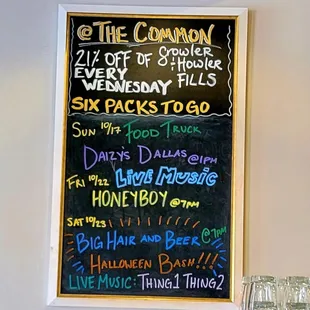 @ THE COMMON
21% OFF OF Growler
& Howler
EVERY FILLS
WEDNESDAY
SIX PACKS TO GO
SUN 10/17 FOOD TRUCK
DAIZY'S DALLAS @ 1PM
FRI 10/22 LIVE MUSIC
HONEYBOY @ 7PM
SAT 10/23
BIG HAIR AND BEER @ 7PM
HALLOWEEN BASH!!!
LIVE MUSIC: THING 1 THING 2